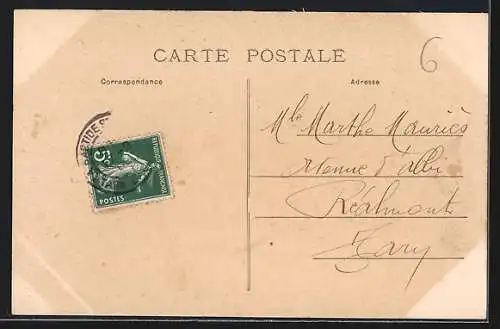 CARTE POSTALE
6
Correspondance
Adresse
Mlle Marthe Mauriès
Avenue d'albi
Réalmont
Tarn
5c
POSTES
REPUBLIQUE FRANCAISE